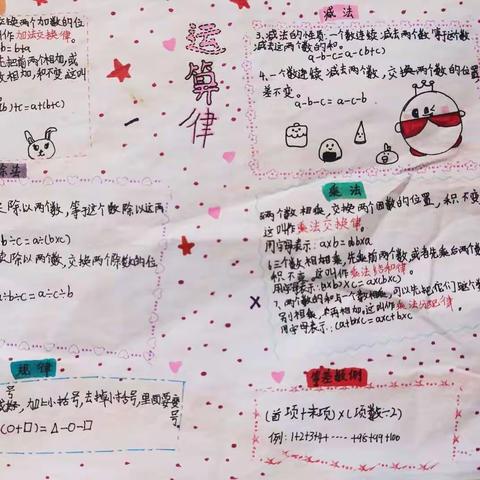 运算律
交换两个加数的位
叫作加法交换律。
b=b+a
先把前两个相加,或
数相加,和不变,这叫
b)+c=a+(b+c)
减法
3.减法的性质:一个数连续减去两个数,等于这个数
减去这两个数的和。
a-b-c=a-(b+c)
4.一个数连续减去两个数,交换两个数的位置
差不变。
a-b-c=a-c-b
除法
除以两个数,等于这个数除以这两
b÷c=a÷(b×c)
除以两个数,交换两个除数的位
÷b÷c=a÷c÷b
乘法
两个数相乘,交换两个因数的位置,积不变
这叫作乘法交换律。
用字母表示:a×b=b×a
6.三个数相乘,先乘前两个数,或者先乘后两个数
积不变,这叫作乘法结合律。
用字母表示:(a×b)×c=a×(b×c)
7.两个数的和与一个数相乘,可以先把它们与这个数
别相乘,再相加,这叫作乘法分配律。
用字母表示:(a+b)×c=a×c+b×c
规律
号
加上小括号,去掉小括号,里面要变
号
(○+□)=△-○-□
等差数列
(首项+末项)×(项数÷2)
例:1+2+3+4+……+98+99+100